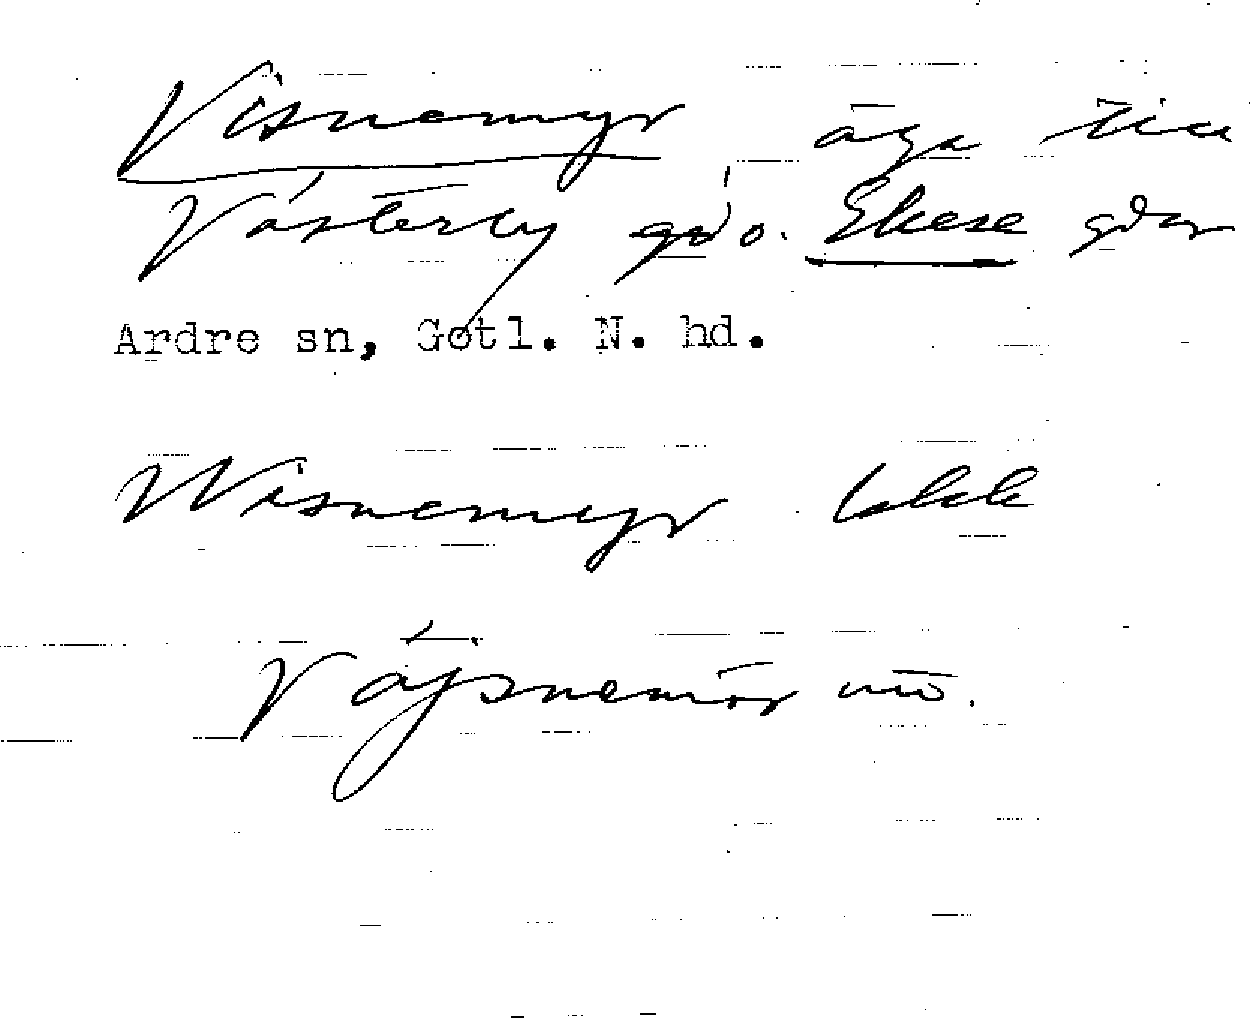 Visnemyr äga till
Västerby gd o. Ekese gdar
Ardre sn, Gotl. N. hd.
Wisnemyr Ekk
Väjsnemör uö.